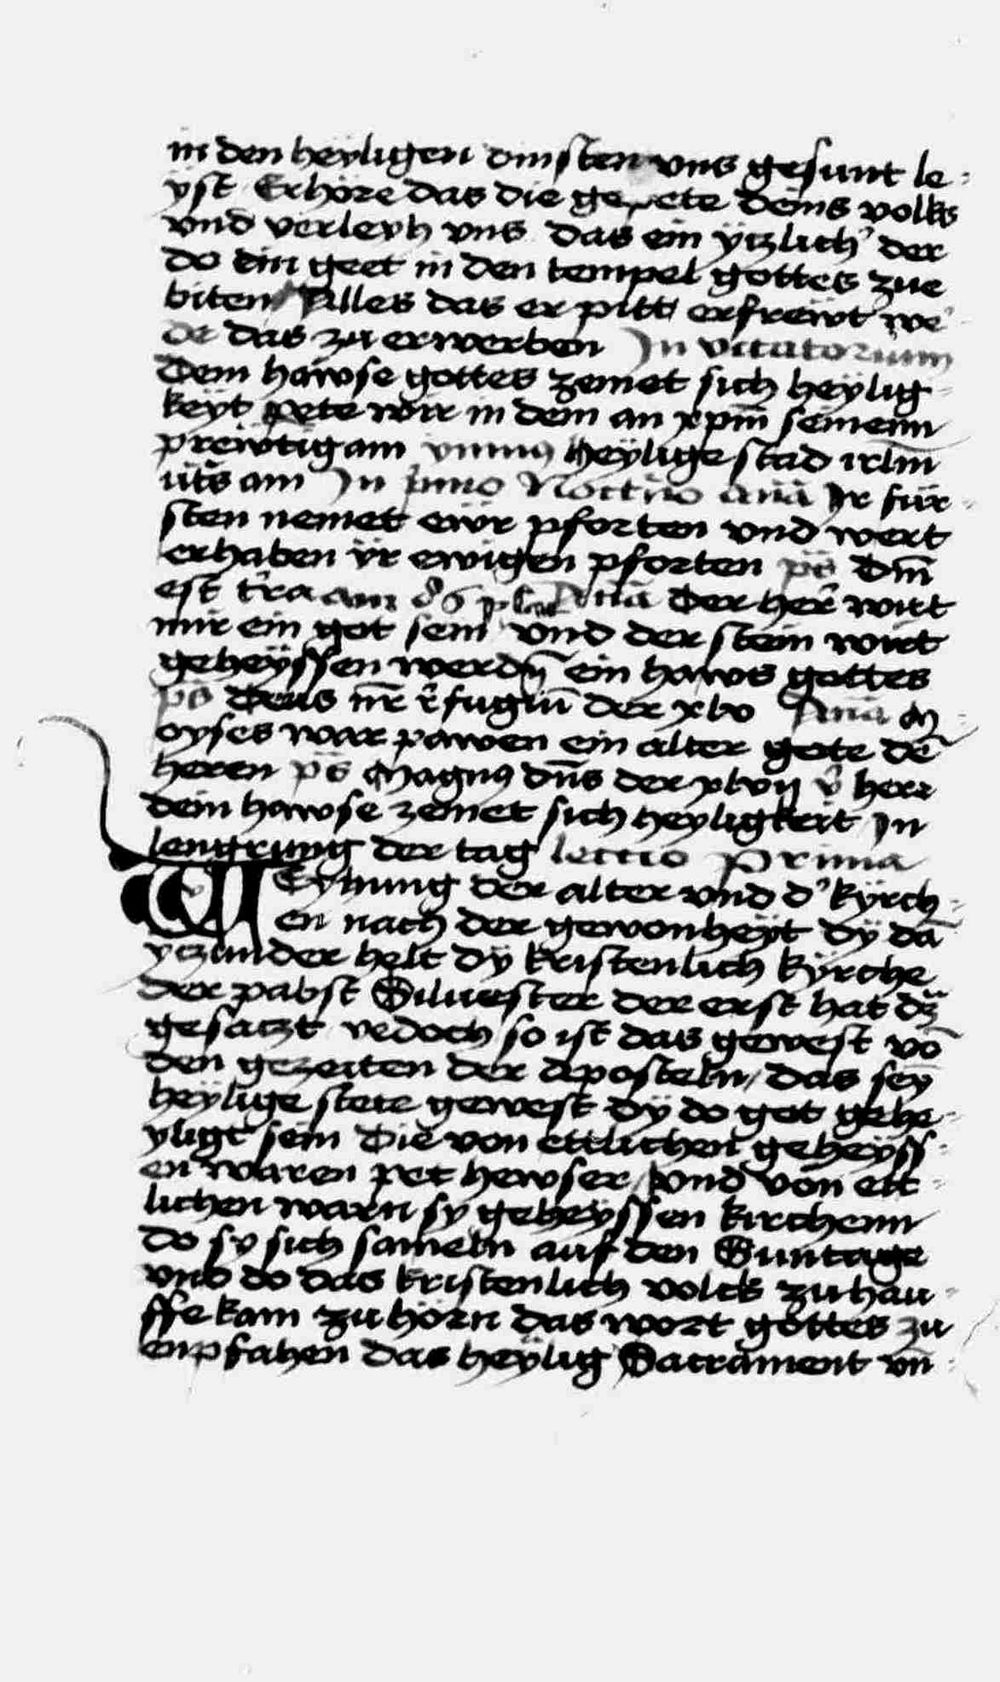 in den heyligen dinsten vns gesunt le-
yst Erhöre das die gepete deins volks
vnd verleyh vns das ein ÿtzlich' der
do ein geet in den tempel gottes zue
biten Alles das er pitt erfreẅt we
de das zu erwerben In vitatorium
Dem haẅse gottes zemet sich heÿlig
keÿt pete wir in dem an xpm̄ seinenn
preẅtigam ymnus heÿlige stad irlm̄
uts am In primo Noct'no an̄a Ir für-
sten nemet eẅr pforten vnd wert
erhaben ÿr ewigen pforten ps̄ Dn̄i
est t'ra am Der her̄ wirt
mir ein got sein vnd der stein wirt
geheÿssen werdn̄ ein haws gottes
ps̄ Deus nr̄ r̄fugiū der xlv An̄a M-
oyses war pawen ein alter gote dē
heren ps̄ Magnus dn̄s der xlvij v̂ herr
dein hawse zemet sich heyligkeit In
lengrung der tag lectio Prima
WEyhung der alter vnd d' kÿrch-
en nach der gewonheÿt dÿ dā
ytzunder helt dÿ kristenlich kÿrche
Der pabst Siluester der erst hat dz
gesatzt yedoch so ist das gewest vō
den gezeiten der aposteln das seÿ
heÿlige stete gewest dÿ do got gehe-
yligt sein Die von ettlichen geheÿss-
en waren pet hewser vnd von ett-
lichen warn sy geheÿssen kirchenn
do sy sich sameln auf den Suntage
vnd do das kristenlich volck zu hau-
sse kam zu hörn das wort gottes zu
enpfahen das heÿlig Sacrament vn̄-